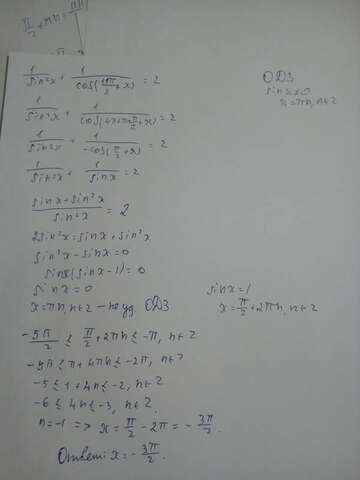 π/2 + πn = πn
1/sin²x + 1/cos(11π/2 + x) = 2
ОДЗ
sinx≠0
x≠πn, n∈Z
1/sin²x + 1/cos(4π+π+π/2+x) = 2
1/sin²x + 1/-cos(π/2+x) = 2
1/sin²x + 1/sinx = 2
sinx+sin²x/sin³x = 2
2sin²x=sinx+sin²x
sin²x-sinx=0
sinx(sinx-1)=0
sinx=0
sinx=1
x=πn, n∈Z - не уд. ОДЗ
x=π/2+2πn, n∈Z
-5π/2 ≤ π/2+2πn ≤ -π, n∈Z
-5π ≤ π+4πn ≤ -2π, n∈Z
-5 ≤ 1+4n ≤ -2, n∈Z
-6 ≤ 4n ≤ -3, n∈Z
n=-1 => x=π/2-2π = -3π/2.
Ответ: x=-3π/2.